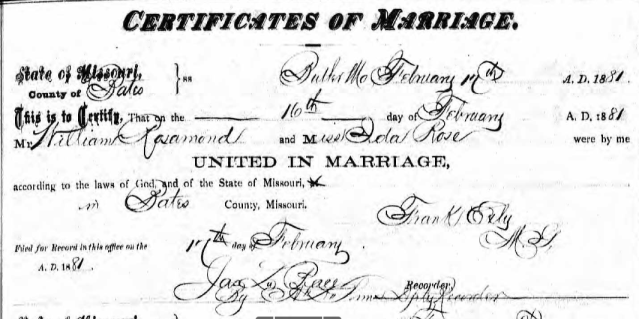 CERTIFICATES OF MARRIAGE.
State of Missouri, County of Bates } ss Butler Mo February 17th A. D. 1881.
This is to Certify, That on the 16th day of February A. D. 1881
Mr William Rosamond and Miss Ida Rose were by me
UNITED IN MARRIAGE,
according to the laws of God, and of the State of Missouri,
in Bates County, Missouri.
Frank
M.G.
Filed for Record in this office on the 17th day of February
A. D. 1881.
Jas. Recorder,
By Deputy Recorder